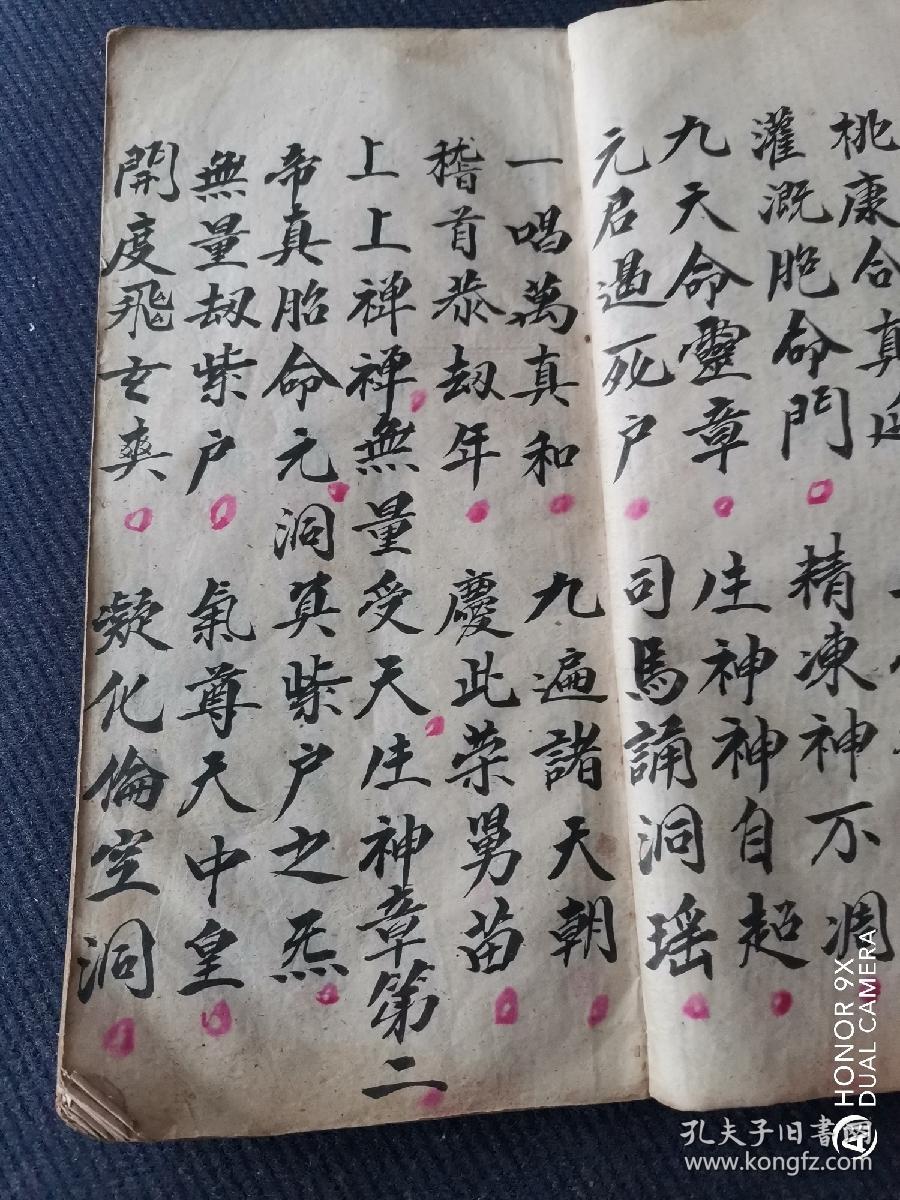 桃康合真延
灌溉胞命門 精凍神不凋
九天命靈章 生神神自超
元君遏死户 司馬誦洞瑶
一唱萬真和 九遍諸天朝
稽首恭劫年 慶此荣男苗
上上禅禅無量受天生神章第二
帝真胎命元洞真紫户之炁
無量劫紫户 氣尊天中皇
開度飛玄爽 凝化倫空洞
HONOR 9X
DUAL CAMERA
孔夫子旧書网
www.kongfz.com